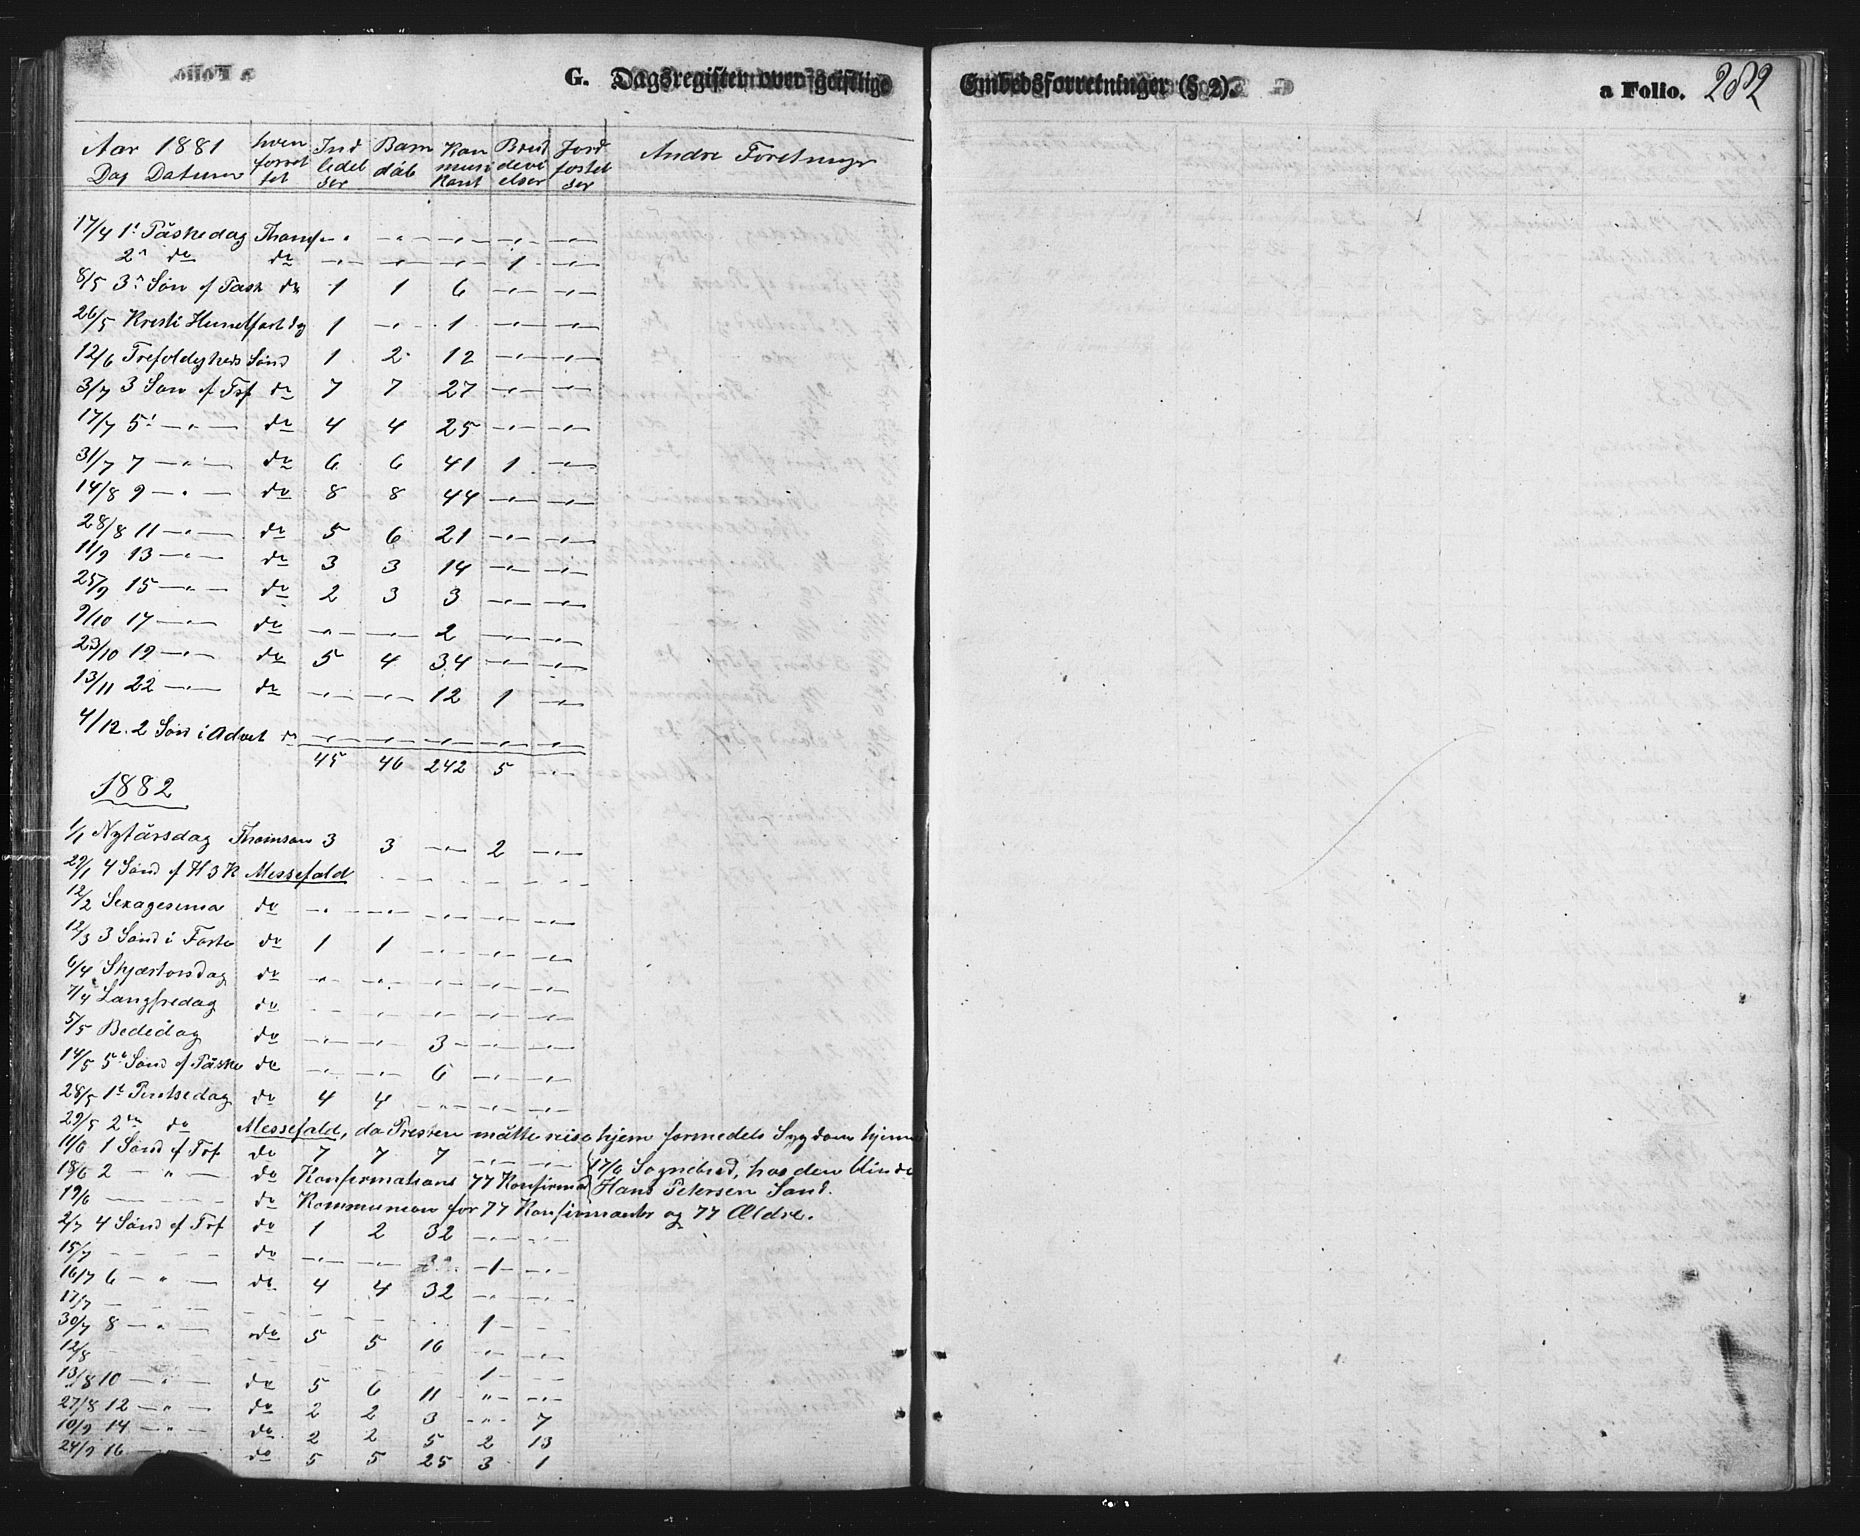 G. Dagsregister over geistlige Embedsforretninger (§ 2). a Folio. 282
Aar 1881 hvem Ind Barn Kom Brud Jord Andre Foretninger
Dag Datum forret ledel dåb muni devi fæstel
tet ser kant elser ser
17/4 1ᵗ Påskedag Thoms -"- -"- -"- -"- -"-
2ⁿ do do -"- -"- -"- 1 -"-
8/5 3ⁿ Søn ef Påsk do 1 1 6 -"- -"-
26/5 Kristi Himelfart dg 1 -"- 1 -"- -"-
12/6 Trefoldigheds Sønd 1 2 12 -"- -"-
3/7 3 Søn ef Tref do 7 7 27 -"- -"-
17/7 5ᵗ -"- do 4 4 25 -"- -"-
31/7 7 -"- do 6 6 41 1 -"-
14/8 9 -"- do 8 8 44 -"- -"-
28/8 11 -"- do 5 6 21 -"- -"-
11/9 13 -"- do 3 3 14 -"- -"-
25/9 15 -"- do 2 3 3 -"- -"-
9/10 17 -"- do -"- -"- 2 -"- -"-
23/10 19 -"- do 5 4 34 -"- -"-
13/11 22 -"- do -"- -"- 12 1 -"-
4/12. 2 Søn i Advet do -"- -"- -"- -"- -"-
45 46 242 5 -"-
1882
1/1 Nytårsdag Thomson 3 3 -"- 2 -"-
29/1 4 Sønd ef H 3 K Messefald - - - - -
12/2 Sexagesima do -"- -"- -"- -"- -"-
12/3 3 Sønd i Faste do 1 1 -"- -"- -"-
6/4 Skjærtorsdag do -"- -"- -"- -"- -"-
7/4 Langfredag do -"- -"- -"- -"- -"-
5/5 Bededag do -"- -"- 3 -"- -"-
14/5 5ᵗ Sønd ef Påske do -"- -"- 6 -"- -"-
28/5 1ᵗ Pintsedag do 4 4 -"- -"- -"-
29/5 2ᵈᵉⁿ do Messefald, da Presten måtte reise hjem formedels Sygdom hjeme
11/6 1 Sønd ef Tref do 7 7 7 -"- -"- 17/6 Sognebud, hos den blinde
18/6 2 - " - do Konfirmations 77 Konfirmad Hans Petersen Sand.
19/6 - - - do Kommunion for 77 Konfirmanter og 77 Ældre.
2/7 4 Sønd ef Tref do 1 2 32 -"- -"-
15/7 - - - do -"- -"- -1- -"-
16/7 6 - " - do 4 4 32 -"- -"-
17/7 - - - - - - 1 - -
30/7 8 - " - do 5 5 16 -"- -"-
12/8 - - - - - - 1 - -
13/8 10 - " - do 5 6 11 " -"-
27/8 12 - " - do 2 2 3 -"- 7
10/9 14 - " - do 2 2 5 2 13
24/9 16 - " - do 5 5 25 3 1